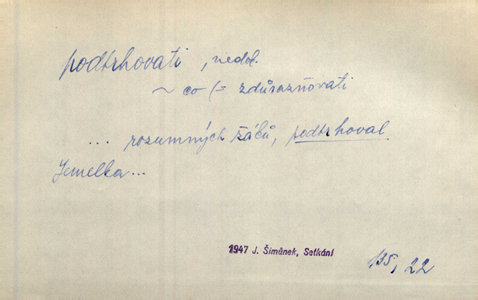 podtrhovati, nedok.
~ co (= zdůrazňovati
... rozumných žábů, podtrhoval
Jemelka...
1947 J. Šimánek, Setkání
195, 22